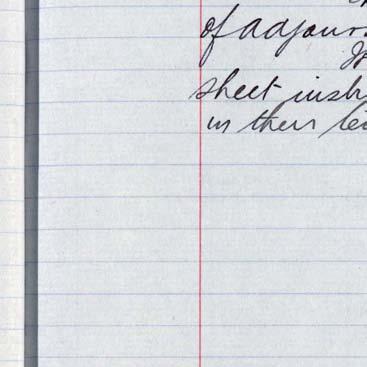 of adjourn
sheet instr
in their